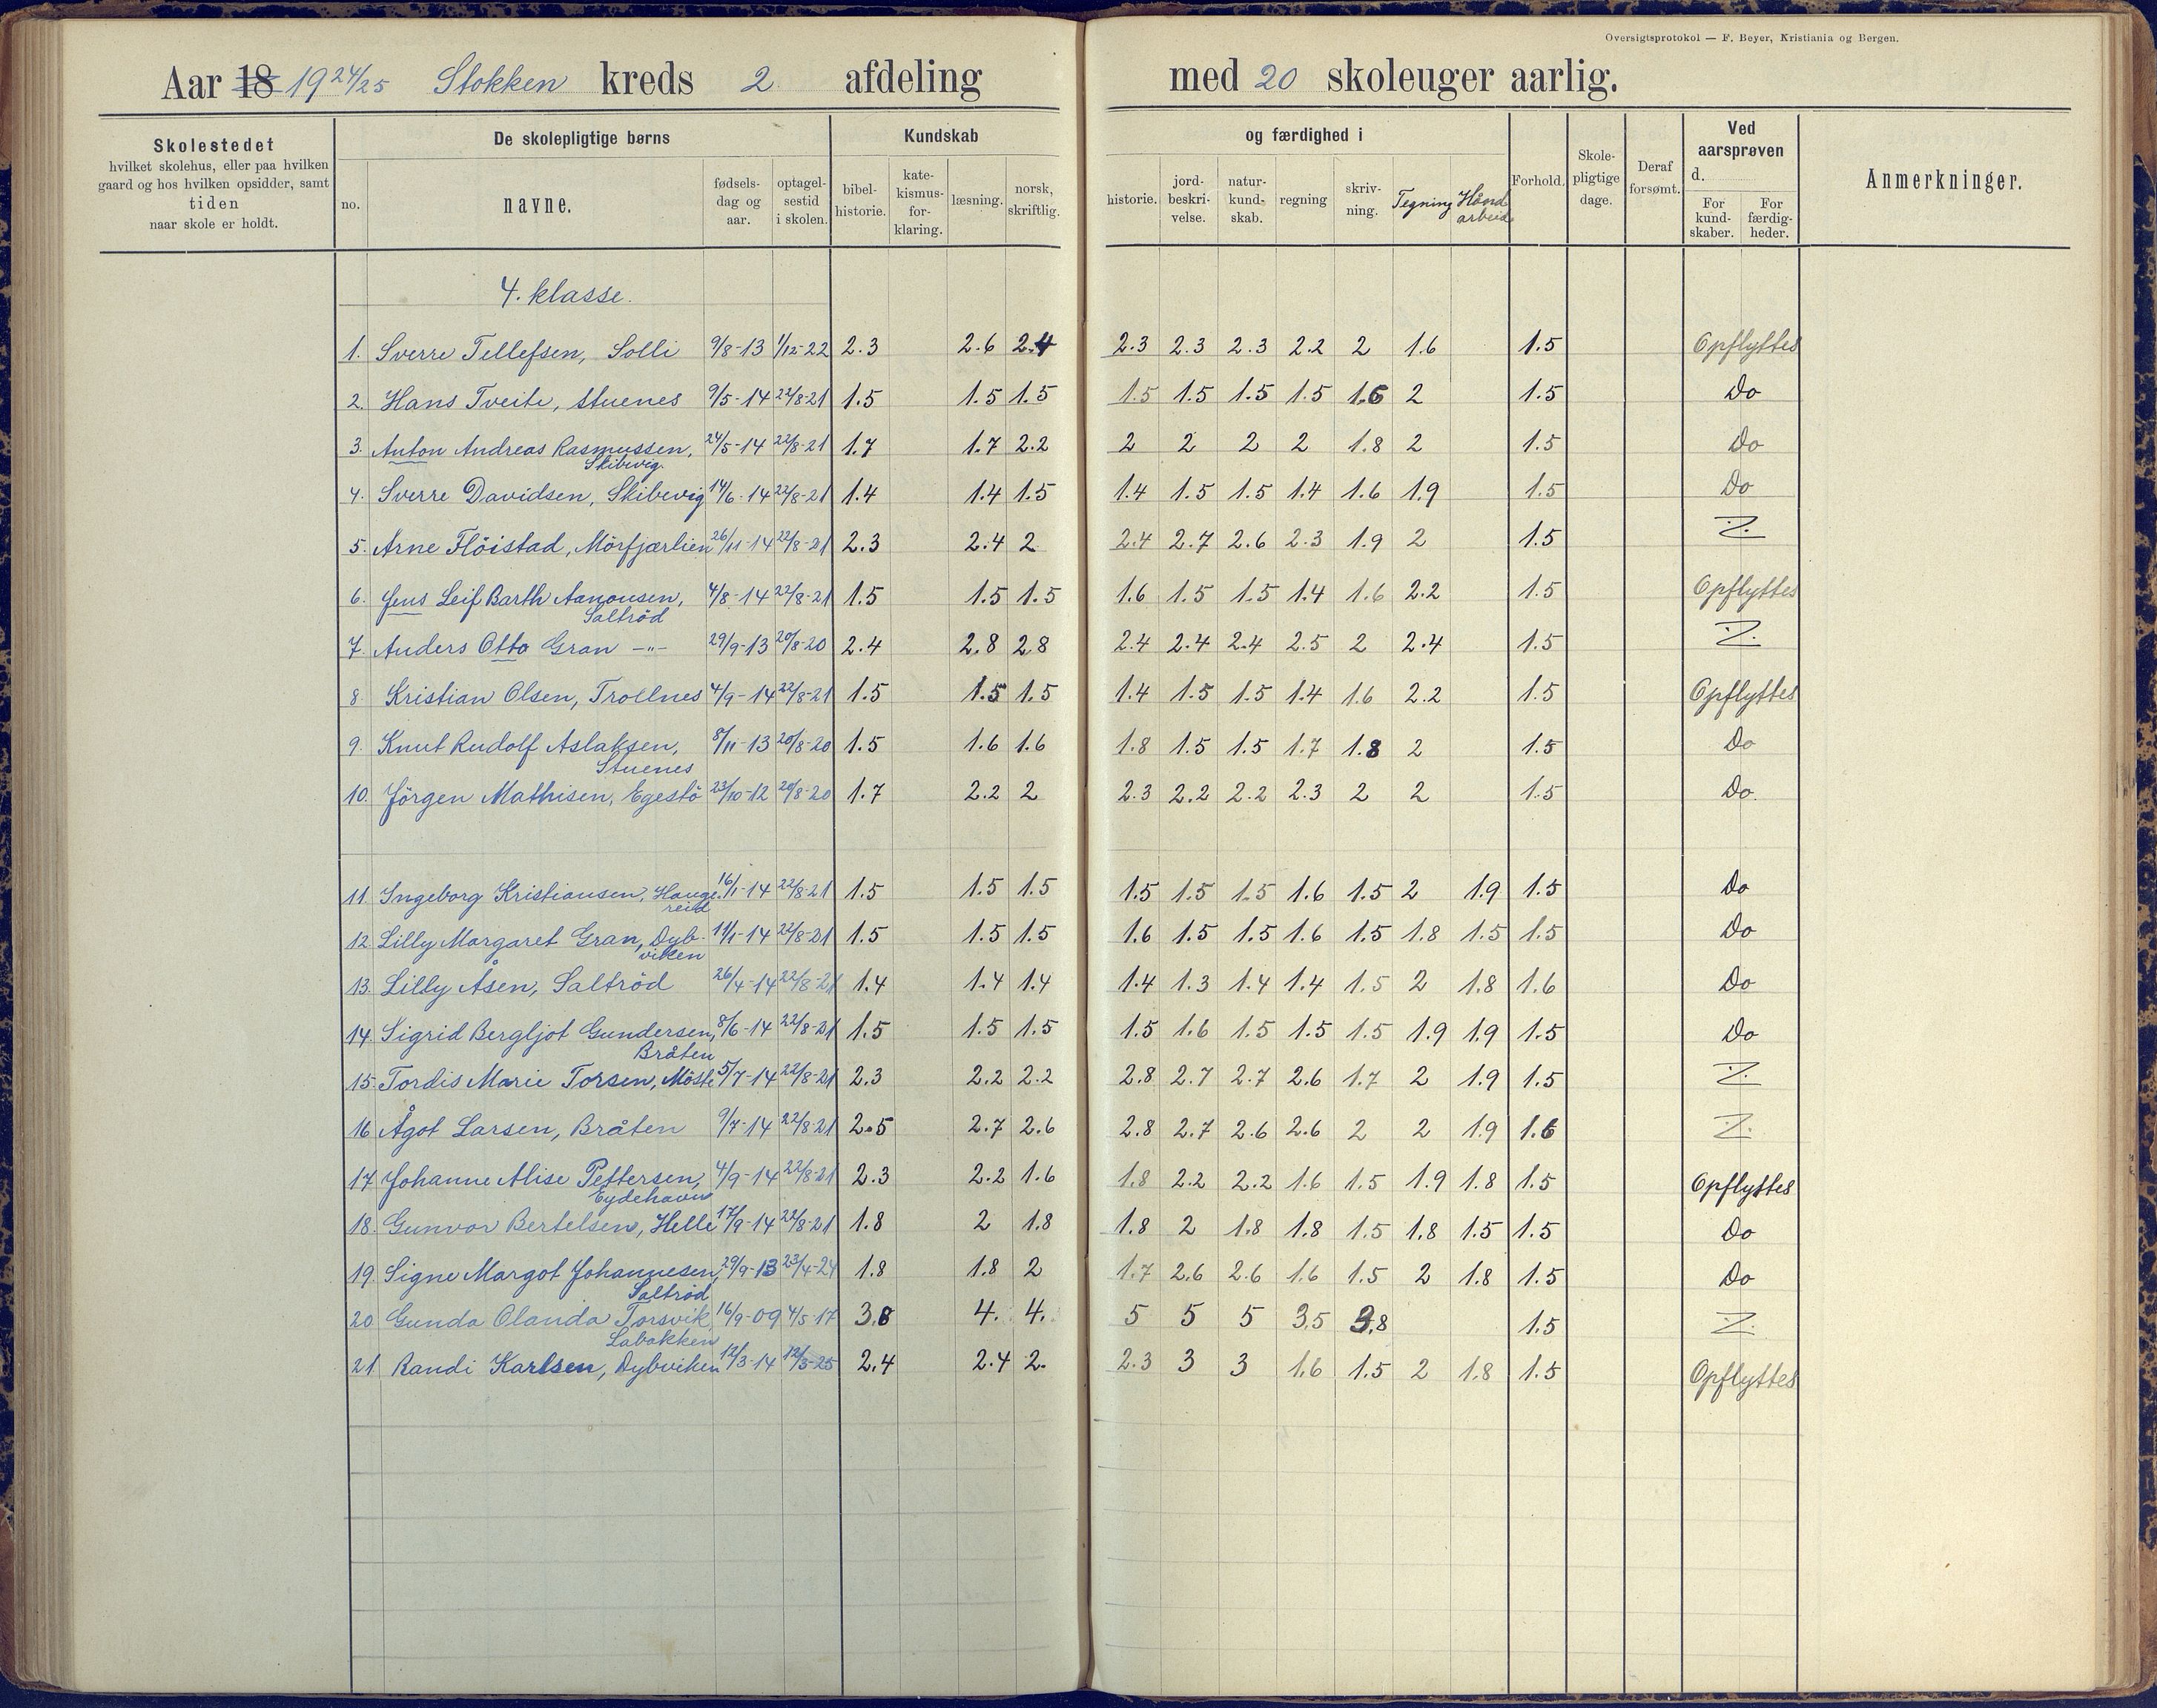 Oversigtsprotokol — F. Beyer, Kristiania og Bergen.
Aar 18 1924/25 Stokken kreds 2 afdeling med 20 skoleuger aarlig.
Skolestedet
hvilket skolehus, eller paa hvilken
gaard og hos hvilken opsidder, samt
tiden
naar skole er holdt.
De skolepligtige børns
no.
navne.
fødsels-
dag og
aar.
optagel-
sestid
i skolen.
Kundskab
bibel-
historie.
kate-
kismus-
for-
klaring.
læsning.
norsk,
skriftlig.
og færdighed i
historie.
jord-
beskri-
velse.
natur-
kund-
skab.
regning
skriv-
ning.
Tegning
Hånd
arbeid
Forhold.
Skole-
pligtige
dage.
Deraf
forsømt.
Ved
aarsprøven
d.
For
kund-
skaber.
For
færdig-
heder.
Anmerkninger.
4. klasse.
1. Sverre Tellefsen, Solli 9/8-13 1/12-22 2.3 2.6 2.4 2.3 2.3 2.3 2.2 2 1.6 1.5 Opflyttes
2. Hans Tveite, Stuenes 9/5-14 22/8-21 1.5 1.5 1.5 1.5 1.5 1.5 1.5 1.6 2 1.5 Do
3. Anton Andreas Rasmussen, 24/5-14 22/8-21 1.7 1.7 2.2 2 2 2 2 1.8 2 1.5 Do
Skibvig.
4. Sverre Davidsen, Skibevig 14/6-14 22/8-21 1.4 1.4 1.5 1.4 1.5 1.5 1.4 1.6 1.9 1.5 Do
5. Arne Flöistad, Mörfjærlien 26/11-14 22/8-21 2.3 2.4 2 2.4 2.7 2.6 2.3 1.9 2 1.5
6. Jens Leif Barth Aanonsen, 4/8-14 22/8-21 1.5 1.5 1.5 1.6 1.5 1.5 1.4 1.6 2.2 1.5 Opflyttes
Saltröd
7. Anders Otto Gran -"- 29/9-13 20/8-20 2.4 2.8 2.8 2.4 2.4 2.4 2.5 2 2.4 1.5
8. Kristian Olsen, Trollnes 4/9-14 22/8-21 1.5 1.5 1.5 1.4 1.5 1.5 1.4 1.6 2.2 1.5 Opflyttes
9. Knut Rudolf Aslaksen, 8/11-13 20/8-20 1.5 1.6 1.6 1.8 1.5 1.5 1.7 1.8 2 1.5 Do
Stuenes
10. Jörgen Mathisen, Egestö 23/10-12 20/8-20 1.7 2.2 2 2.3 2.2 2.2 2.3 2 2 1.5 Do.
11. Ingeborg Kristiansen, Hauge- 16/1-14 22/8-21 1.5 1.5 1.5 1.5 1.5 1.5 1.6 1.5 2 1.9 1.5 Do
reid
12. Lilly Margaret Gran, Dyb- 11/1-14 22/8-21 1.5 1.5 1.5 1.6 1.5 1.5 1.6 1.5 1.8 1.5 1.5 Do
viken
13. Lilly Åsen, Saltröd 26/4-14 22/8-21 1.4 1.4 1.4 1.4 1.3 1.4 1.4 1.5 2 1.8 1.6 Do
14. Sigrid Bergljot Gundersen, 8/6-14 22/8-21 1.5 1.5 1.5 1.5 1.6 1.5 1.5 1.5 1.9 1.9 1.5 Do
Bråten
15. Tordis Marie Torsen, Möste 5/7-14 22/8-21 2.3 2.2 2.2 2.8 2.7 2.7 2.6 1.7 2 1.9 1.5
16 Ågot Larsen, Bråten 9/7-14 22/8-21 2.5 2.7 2.6 2.8 2.7 2.6 2.6 2 2 1.9 1.6
17 Johanne Alise Pettersen, 4/9-14 22/8-21 2.3 2.2 1.6 1.8 2.2 2.2 1.6 1.5 1.9 1.8 1.5 Opflyttes
Eydehavn
18. Gunvor Bertelsen, Helle 17/9-14 22/8-21 1.8 2 1.8 1.8 2 1.8 1.8 1.5 1.8 1.5 1.5 Do
19. Signe Margot Johannesen, 29/9-13 23/4-24 1.8 1.8 2 1.7 2.6 2.6 1.6 1.5 2 1.8 1.5 Do
Saltröd
20 Gunda Olanda Torsvik, 16/9-09 4/5-17 3.8 4. 4. 5 5 5 3.5 3.8 1.5
Labakken
21 Randi Karlsen, Dybviken 12/3-14 12/3-25 2.4 2.4 2. 2.3 3 3 1.6 1.5 2 1.8 1.5 Opflyttes